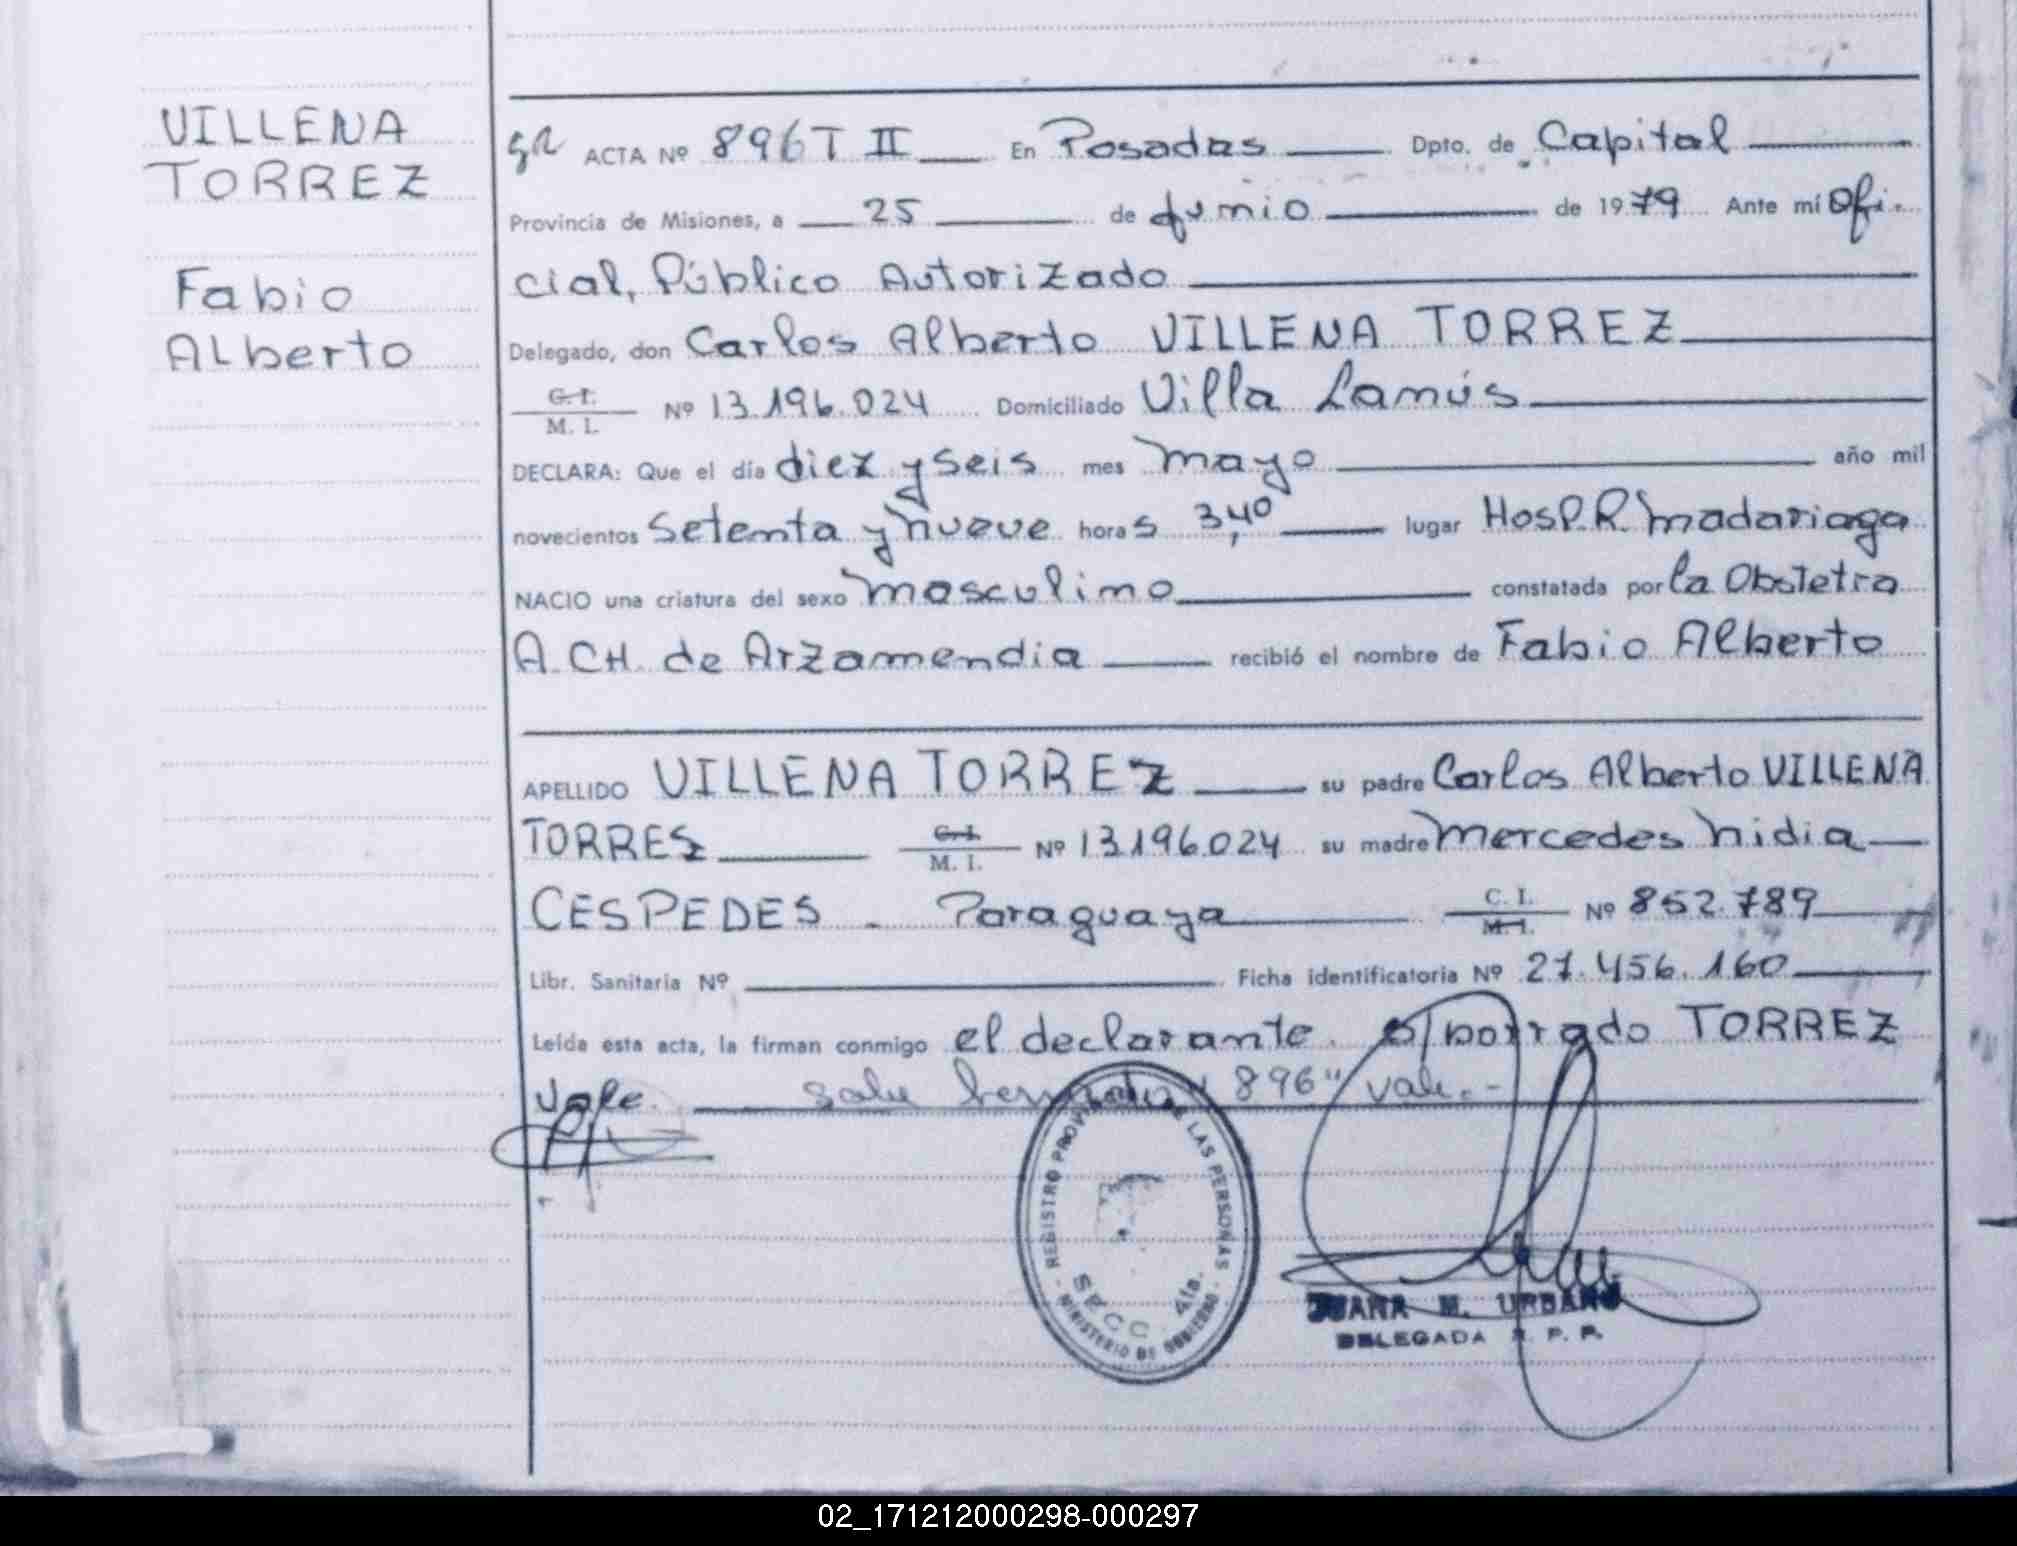 VILLENA
TORREZ
Fabio
Alberto
ACTA Nº 896 T II En Posadas Dpto. de Capital
Provincia de Misiones, a 25 de junio de 1979 Ante mí Ofi-
cial, Público Autorizado
Delegado, don Carlos Alberto VILLENA TORREZ
C. I.
M. I. Nº 13.196.024 Domiciliado Villa Lanús
DECLARA: Que el día diez y seis mes mayo año mil
novecientos setenta y nueve horas 3,40 lugar Hosp. R. Madariaga
NACIO una criatura del sexo masculino constatada por la Obstetra
A. CH. de Arzamendia recibió el nombre de Fabio Alberto
APELLIDO VILLENA TORREZ su padre Carlos Alberto VILLENA
TORRES C. I.
M. I. Nº 13.196.024 su madre Mercedes Nidia
CESPEDES - Paraguaya C. I.
M. I. Nº 852.789
Libr. Sanitaria Nº Ficha identificatoria Nº 27.456.160
Leída esta acta, la firman conmigo el declarante. s/borrado TORREZ
vale. 896" vale.-
REGISTRO PROVINCIAL DE LAS PERSONAS
SECC. 4ta.
MINISTERIO DE GOBIERNO
JUANA M. URBANO
DELEGADA R. P. P.
02_171212000298-000297